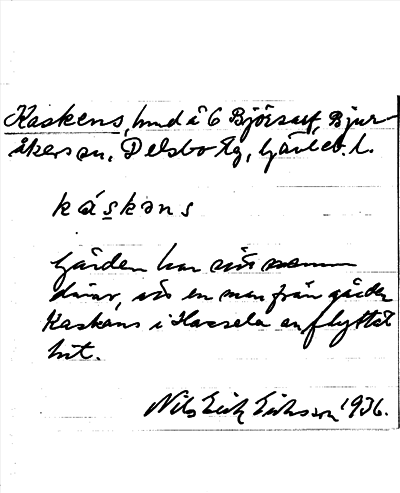 Kaskens, hmd å 6 Björsarf, Bjur-
åkers sn, Delsbo tg, Gävleb. l.
káskəns
Gården har sitt namn
därav, att en man från gården
Kaskens i Hassela en flyttat
hit.
Nils Erik Eriksson 1936.